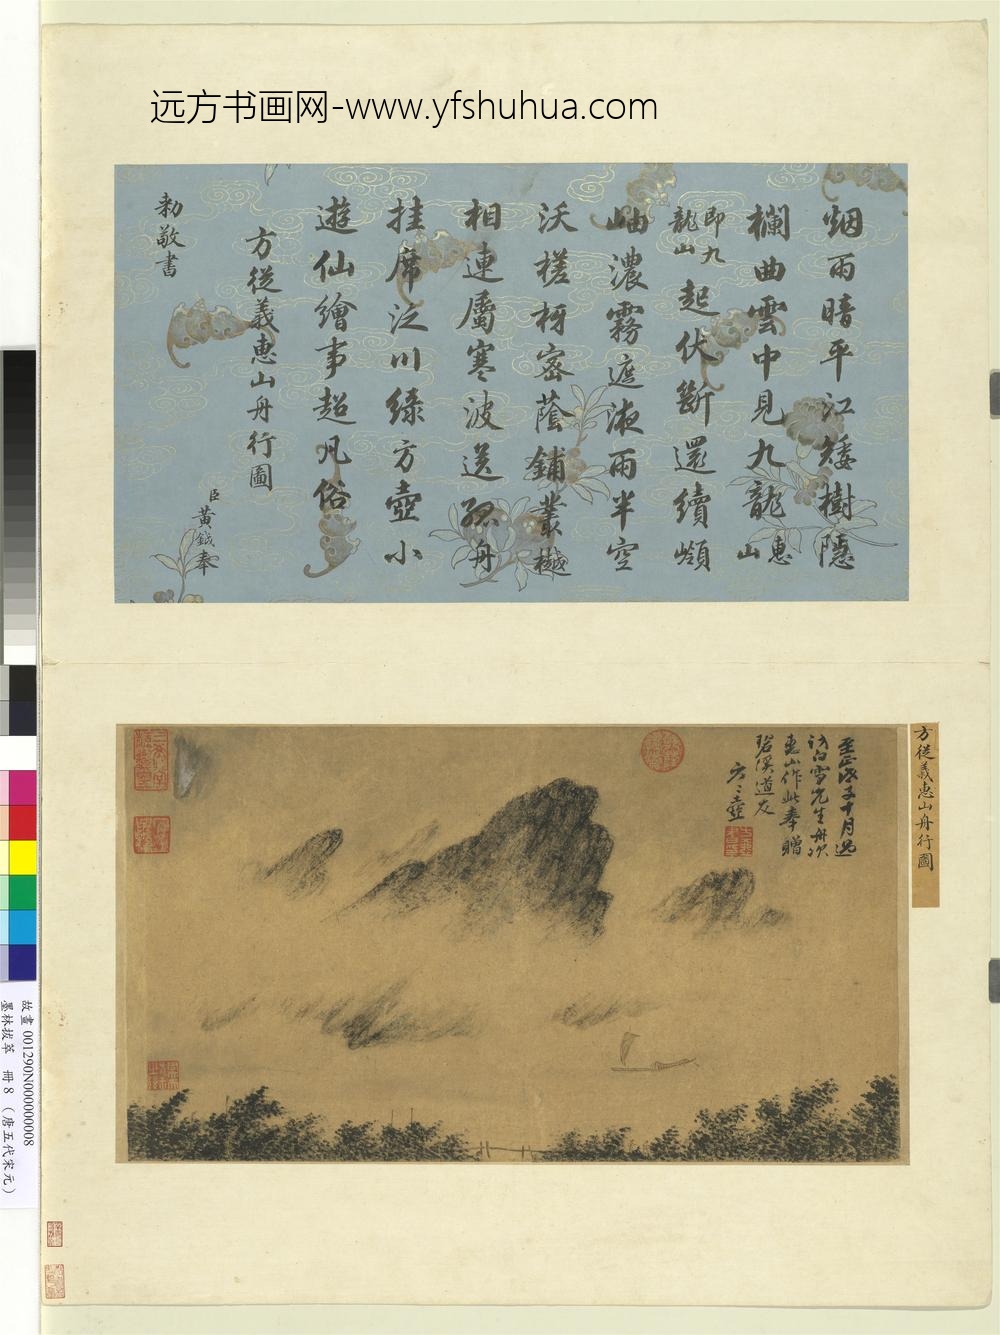 远方书画网-www.yfshuhua.com
烟雨暗平江矮樹隱
欄曲雲中見九龍惠山
即九龍山起伏斷還續巔
岫濃霧遮液雨半空
沃槎枒密蔭鋪叢樾
相連屬寒波送孤舟
挂席泛川綠方壺小
遊仙繪事超凡俗
方從義惠山舟行圖
臣黃鉞奉
勅敬書
方從義惠山舟行圖
至正戊子十月過
訪白雪先生舟次
惠山作此奉贈
碧溪道友
方方壺
故畫 001290N000000008
墨林拔萃 冊 8 (唐五代宋元)